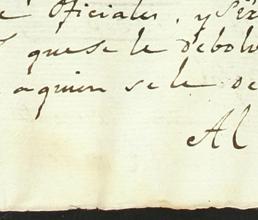 Oficiales, y
que se le debolv
aquien se le de
Al